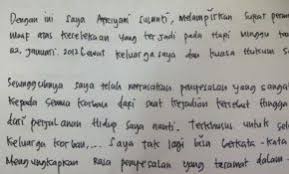 Dengan ini saya Apriyani Susanti, melampirkan surat
atas kecelakaan yang terjadi pada Hari Minggu
22, Januari. 2012 keluarga saya dan kuasa Hukum
Sesungguhnya saya telah merasakan penyesalan yang
kepada semua korban dari saat kejadian tersebut hingga
dari perjalanan Hidup saya nanti. Terkhusus untuk
keluarga korban,... Saya tak lagi bisa berkata-kata
Mengungkapkan Rasa penyesalan yang teramat dalam